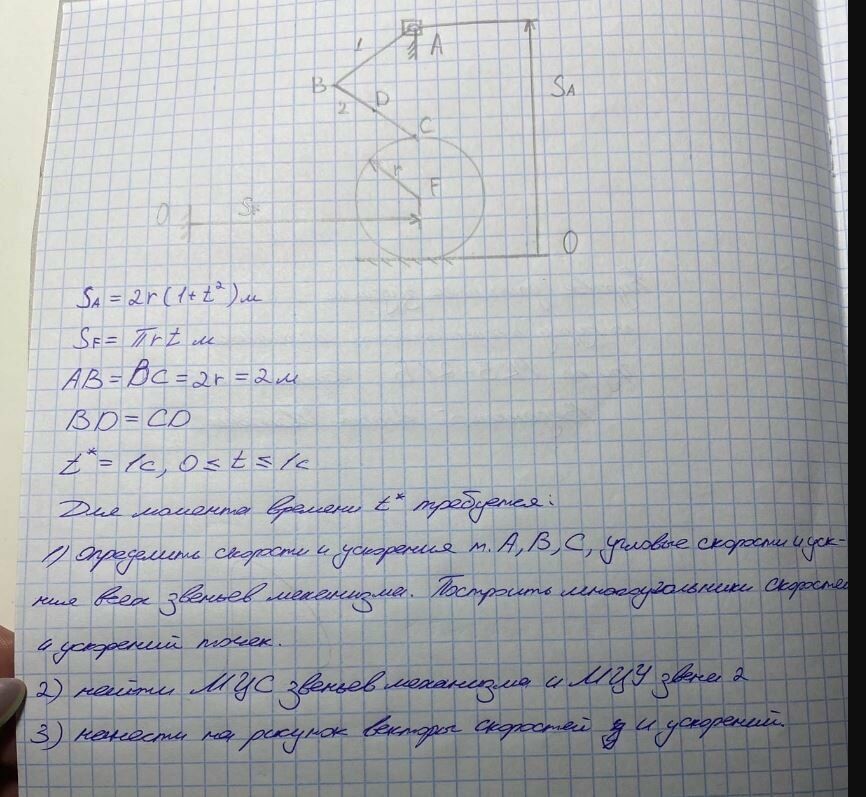 1
A
B
2
D
C
SA
r
F
O
SF
O
SA = 2r(1+t²) м
SF = πrt м
AB = BC = 2r = 2м
BD = CD
t* = 1с, 0 ≤ t ≤ 1с
Для момента времени t* требуется:
1) Определить скорости и ускорения т. А, В, С, угловые скорости и уск-
ния всех звеньев механизма. Построить многоугольники скоростей
и ускорений точек.
2) найти МЦС звеньев механизма и МЦУ звена 2
3) нанести на рисунок векторы скоростей и ускорений.